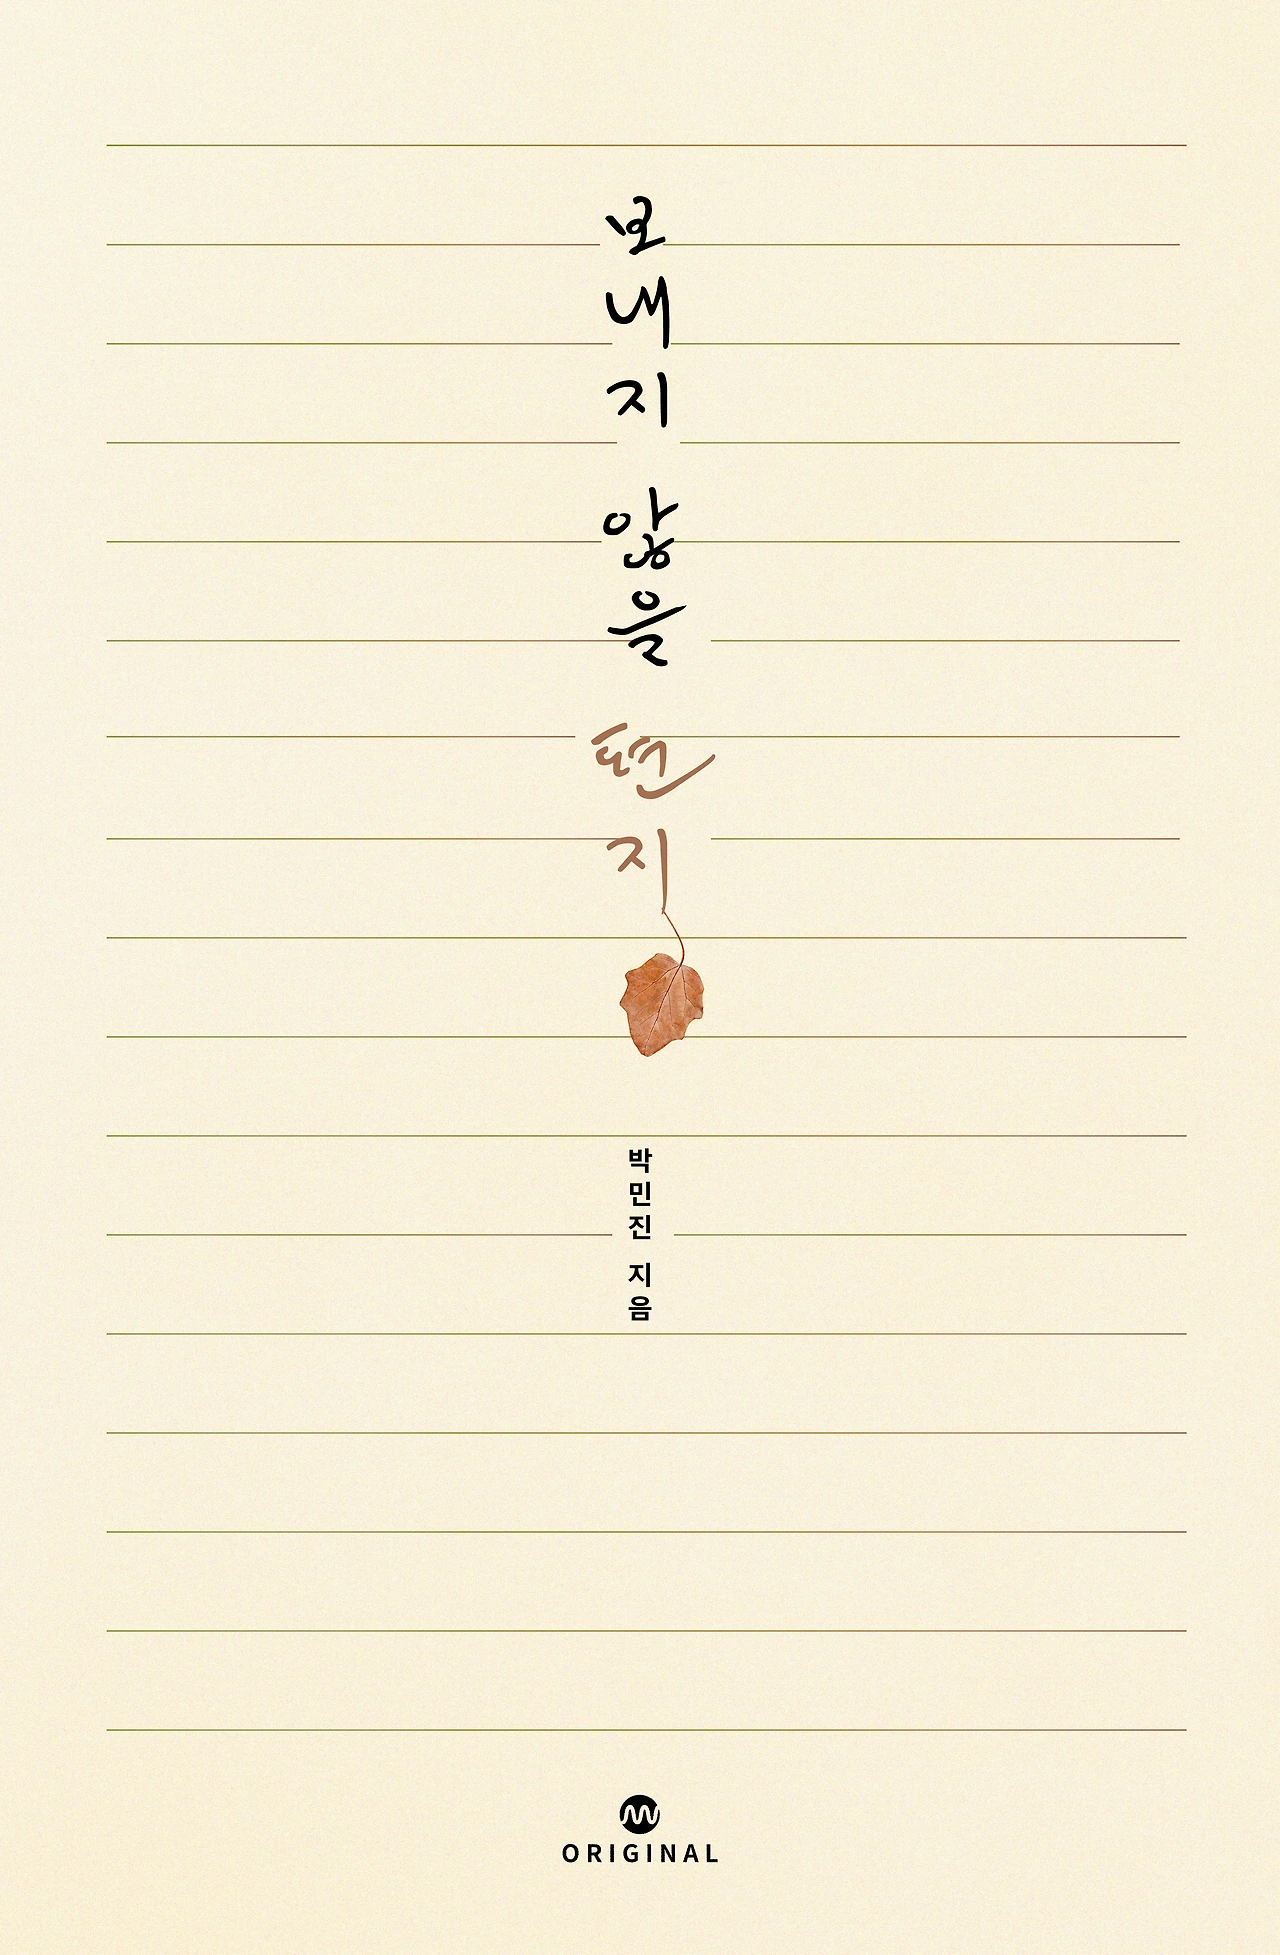 보내지 않을 편지
박민진 지음
ORIGINAL